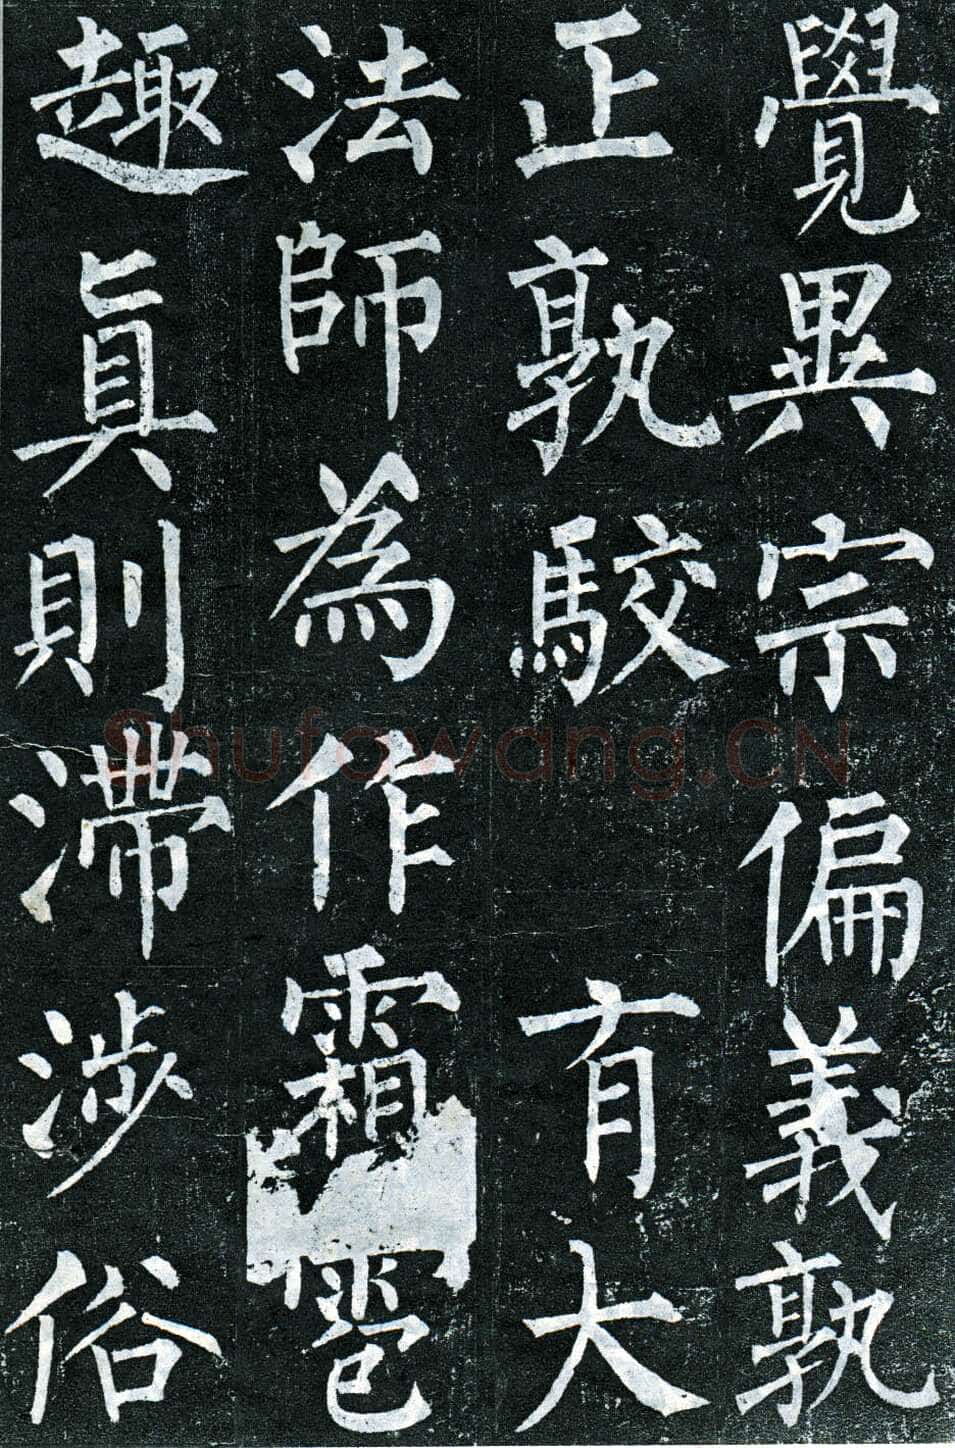 覺異宗偏義孰
正孰駮有大
法師為作霜雹
趣真則滯涉俗
Shufawang.CN